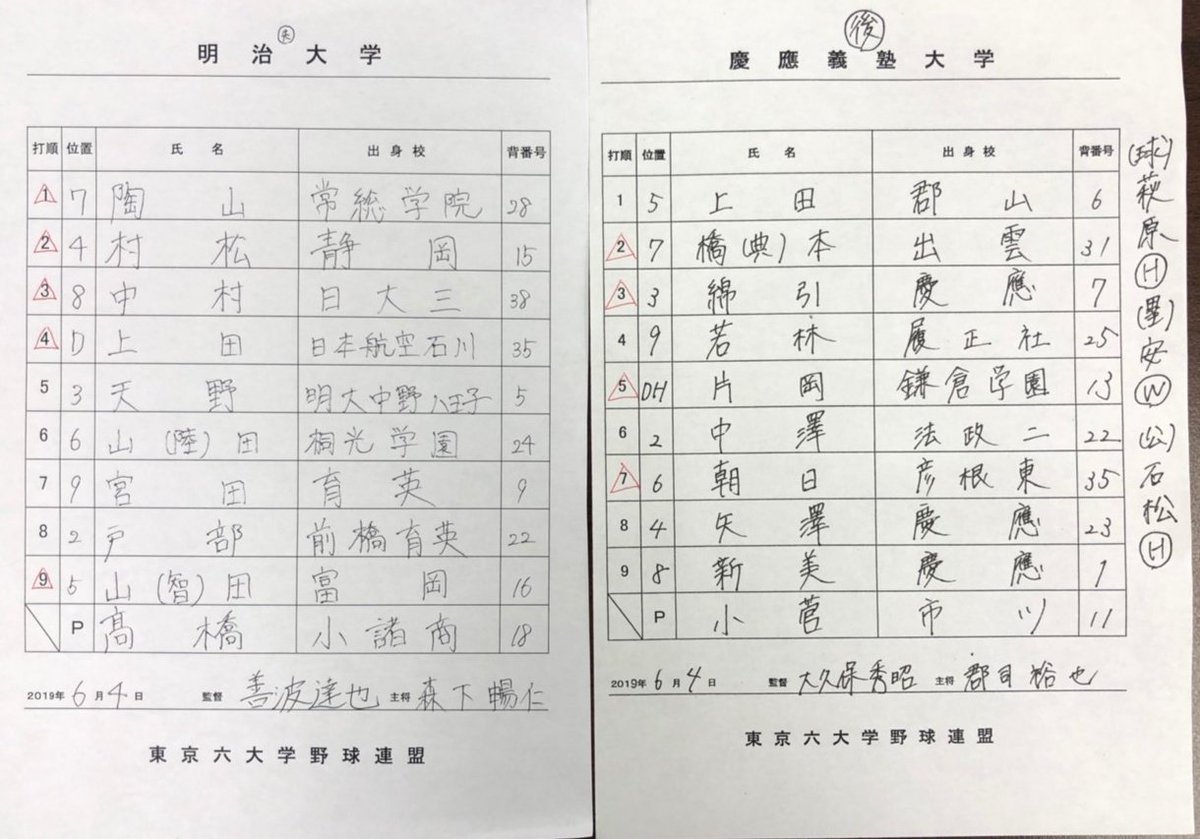 先
明治大学
打順 位置 氏名 出身校 背番号
1 7 陶山 常総学院 28
2 4 村松 静岡 15
3 8 中村 日大三 38
4 D 上田 日本航空石川 35
5 3 天野 明大中野八王子 5
6 6 山(陸)田 桐光学園 24
7 9 宮田 育英 9
8 2 戸部 前橋育英 22
9 5 山(智)田 富岡 16
P 髙橋 小諸商 18
2019年6月4日 監督 善波達也 主将 森下暢仁
東京六大学野球連盟
後
慶應義塾大学
打順 位置 氏名 出身校 背番号
1 5 上田 郡山 6
2 7 橋(典)本 出雲 31
3 3 綿引 慶應 7
4 9 若林 履正社 25
5 DH 片岡 鎌倉学園 13
6 2 中澤 法政二 22
7 6 朝日 彦根東 35
8 4 矢澤 慶應 23
9 8 新美 慶應 1
P 小菅 市川 11
2019年6月4日 監督 大久保秀昭 主将 郡司裕也
東京六大学野球連盟
(球)萩原Ⓗ(塁)安Ⓦ(公)石松Ⓗ